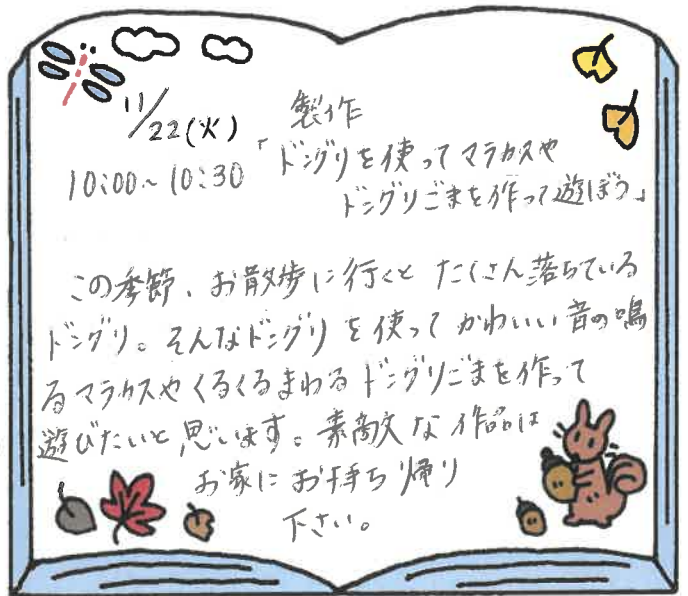 11/22(火)
10:00~10:30
製作
「ドングリを使ってマラカスや
ドングリごまを作って遊ぼう」
この季節、お散歩に行くと たくさん落ちている
ドングリ。そんなドングリを使って かわいい音の鳴
るマラカスやくるくるまわるドングリごまを作って
遊びたいと思います。素敵な作品は
お家にお持ち帰り
下さい。